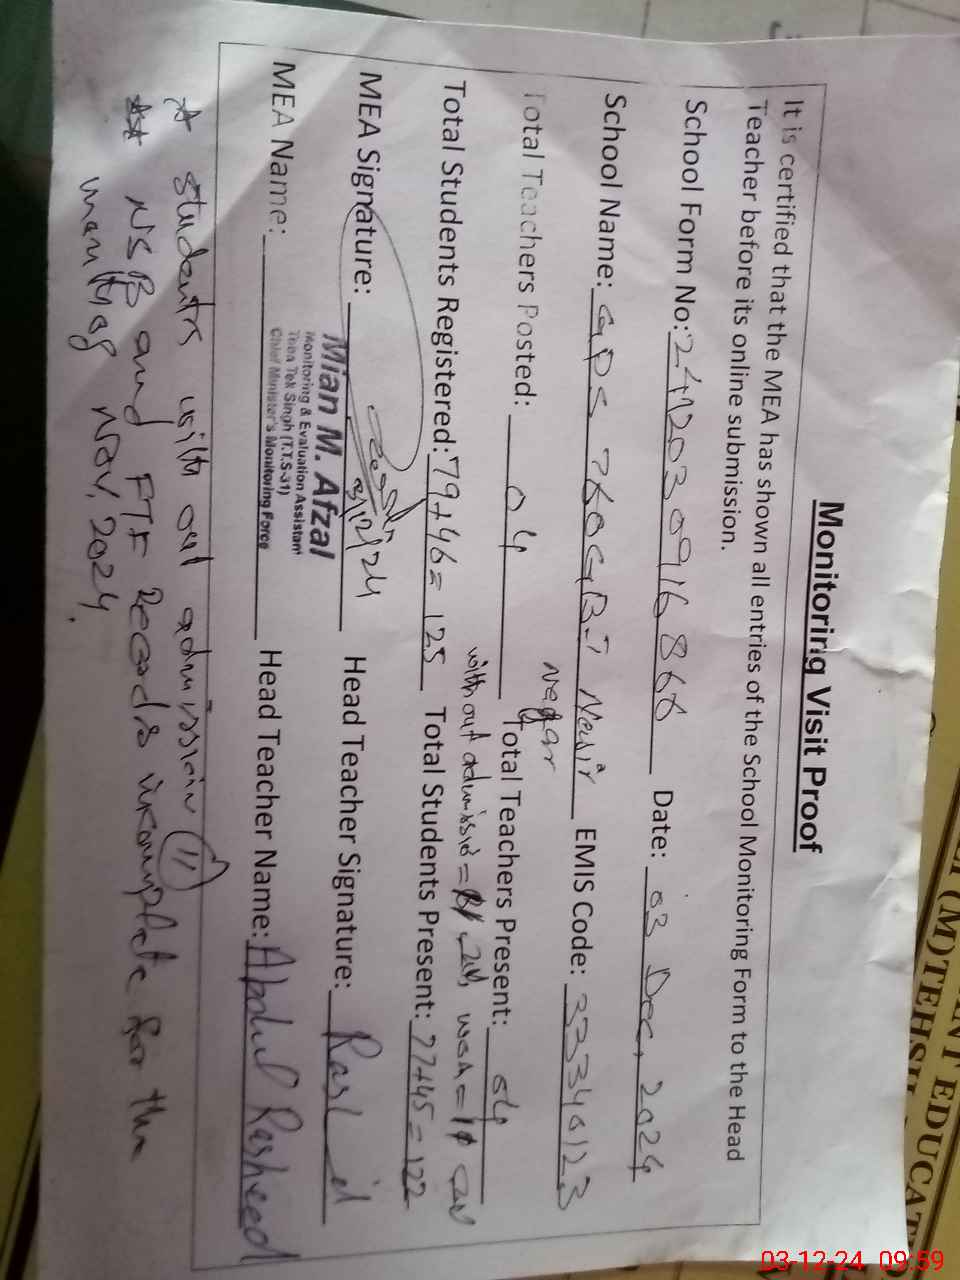 Monitoring Visit Proof
It is certified that the MEA has shown all entries of the School Monitoring Form to the Head
Teacher before its online submission.
School Form No: 2412030916866 Date: 03 Dec, 2024
School Name: GPS 760GB.I Nasir EMIS Code: 33340123
Nagar
Total Teachers Posted: 04 Total Teachers Present: 04
with out admissio =
Total Students Registered: 79+46=125 Total Students Present: 77+45=122
MEA Signature: 3/12/24 Head Teacher Signature: Rashid
Mian M. Afzal
Monitoring & Evaluation Assistant
Toba Tek Singh (T.T.S-31)
Chief Minister's Monitoring Force
MEA Name: Head Teacher Name: Abdul Rasheed
students with out admission 11
NSB and FTF Records incomplete for the
month of Nov, 2024.
ENT EDUCATI
(M)TEHSIL
03-12-24 09:59